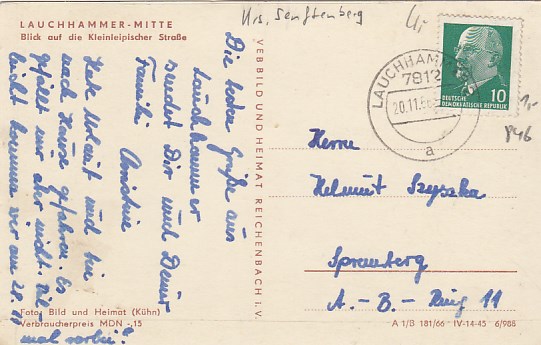 LAUCHHAMMER-MITTE
Blick auf die Kleinleipischer Straße
Krs. Senftenberg
4,-
Die besten Grüße aus
Lauchhammer
sendet Dir und Deiner
Familie
Habe Urlaub und bin
nach Hause gefahren. Es
gefällt mir sehr nicht.
leicht kommen wir am 28.11.
mal vorbei!
VEB BILD UND HEIMAT REICHENBACH i. V.
LAUCHHAMMER
7812
20.11.66
a
10
DEUTSCHE
DEMOKRATISCHE REPUBLIK
1,-
P46
Herrn
Helmut Szyszka
Spremberg
A.-B.-Ring 11
Foto: Bild und Heimat (Kühn)
Verbraucherpreis MDN -,15
A 1/B 181/66 IV-14-45 6/988